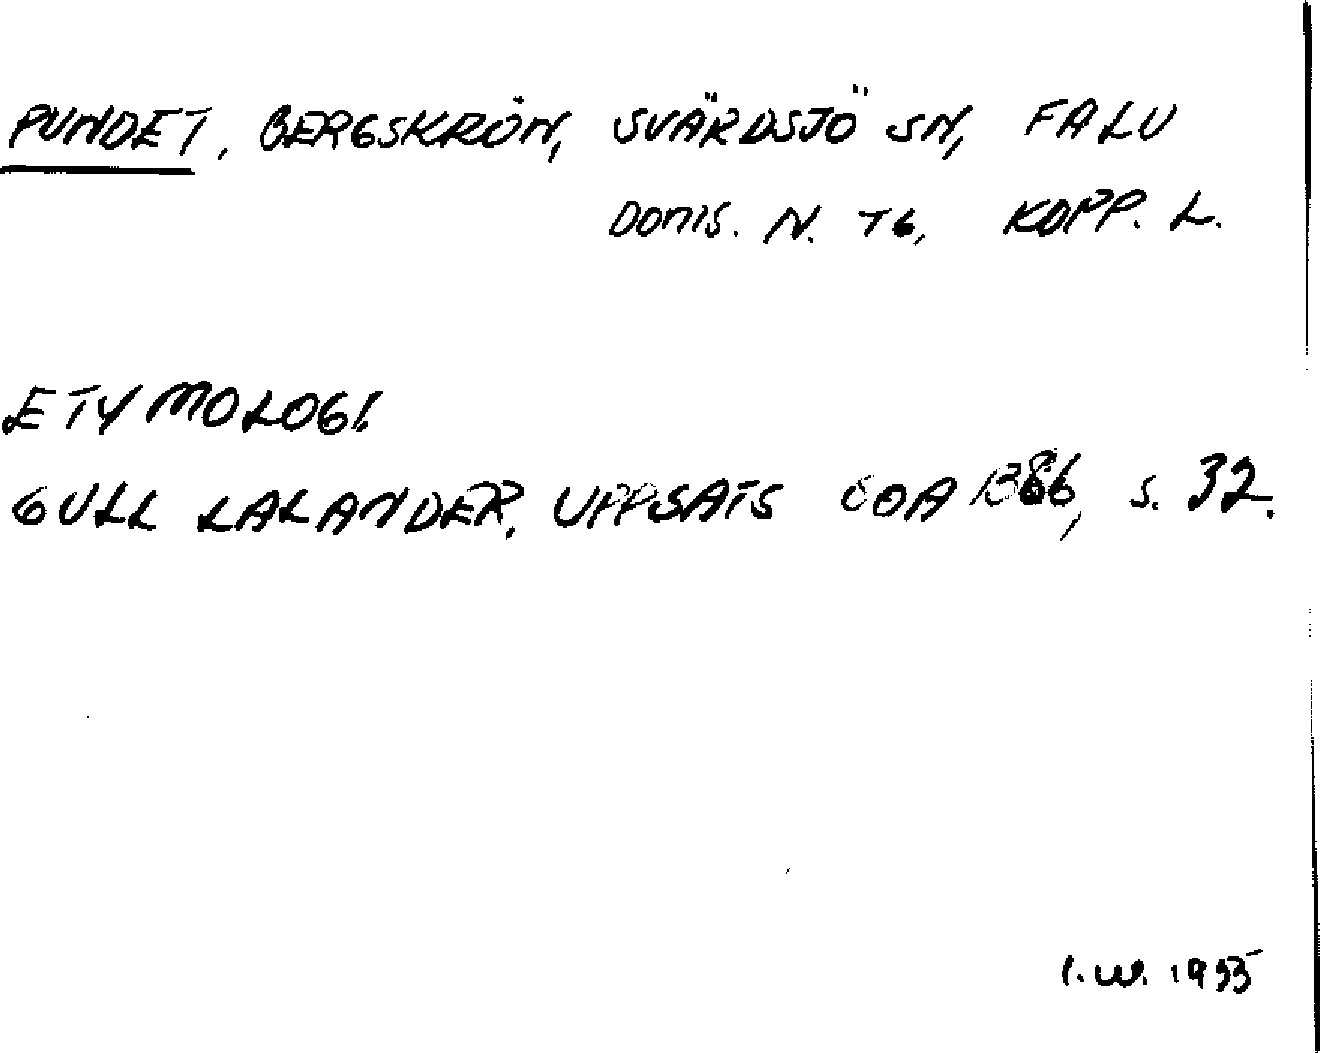 PUNDET, BERGSKRÖN, SVÄRDSJÖ SN, FALU
DOMS. N. TG, KOPP. L.
ETYMOLOGI.
GULL LALANDER, UPPSATS SOA 1386, s. 32.
I.W. 1955